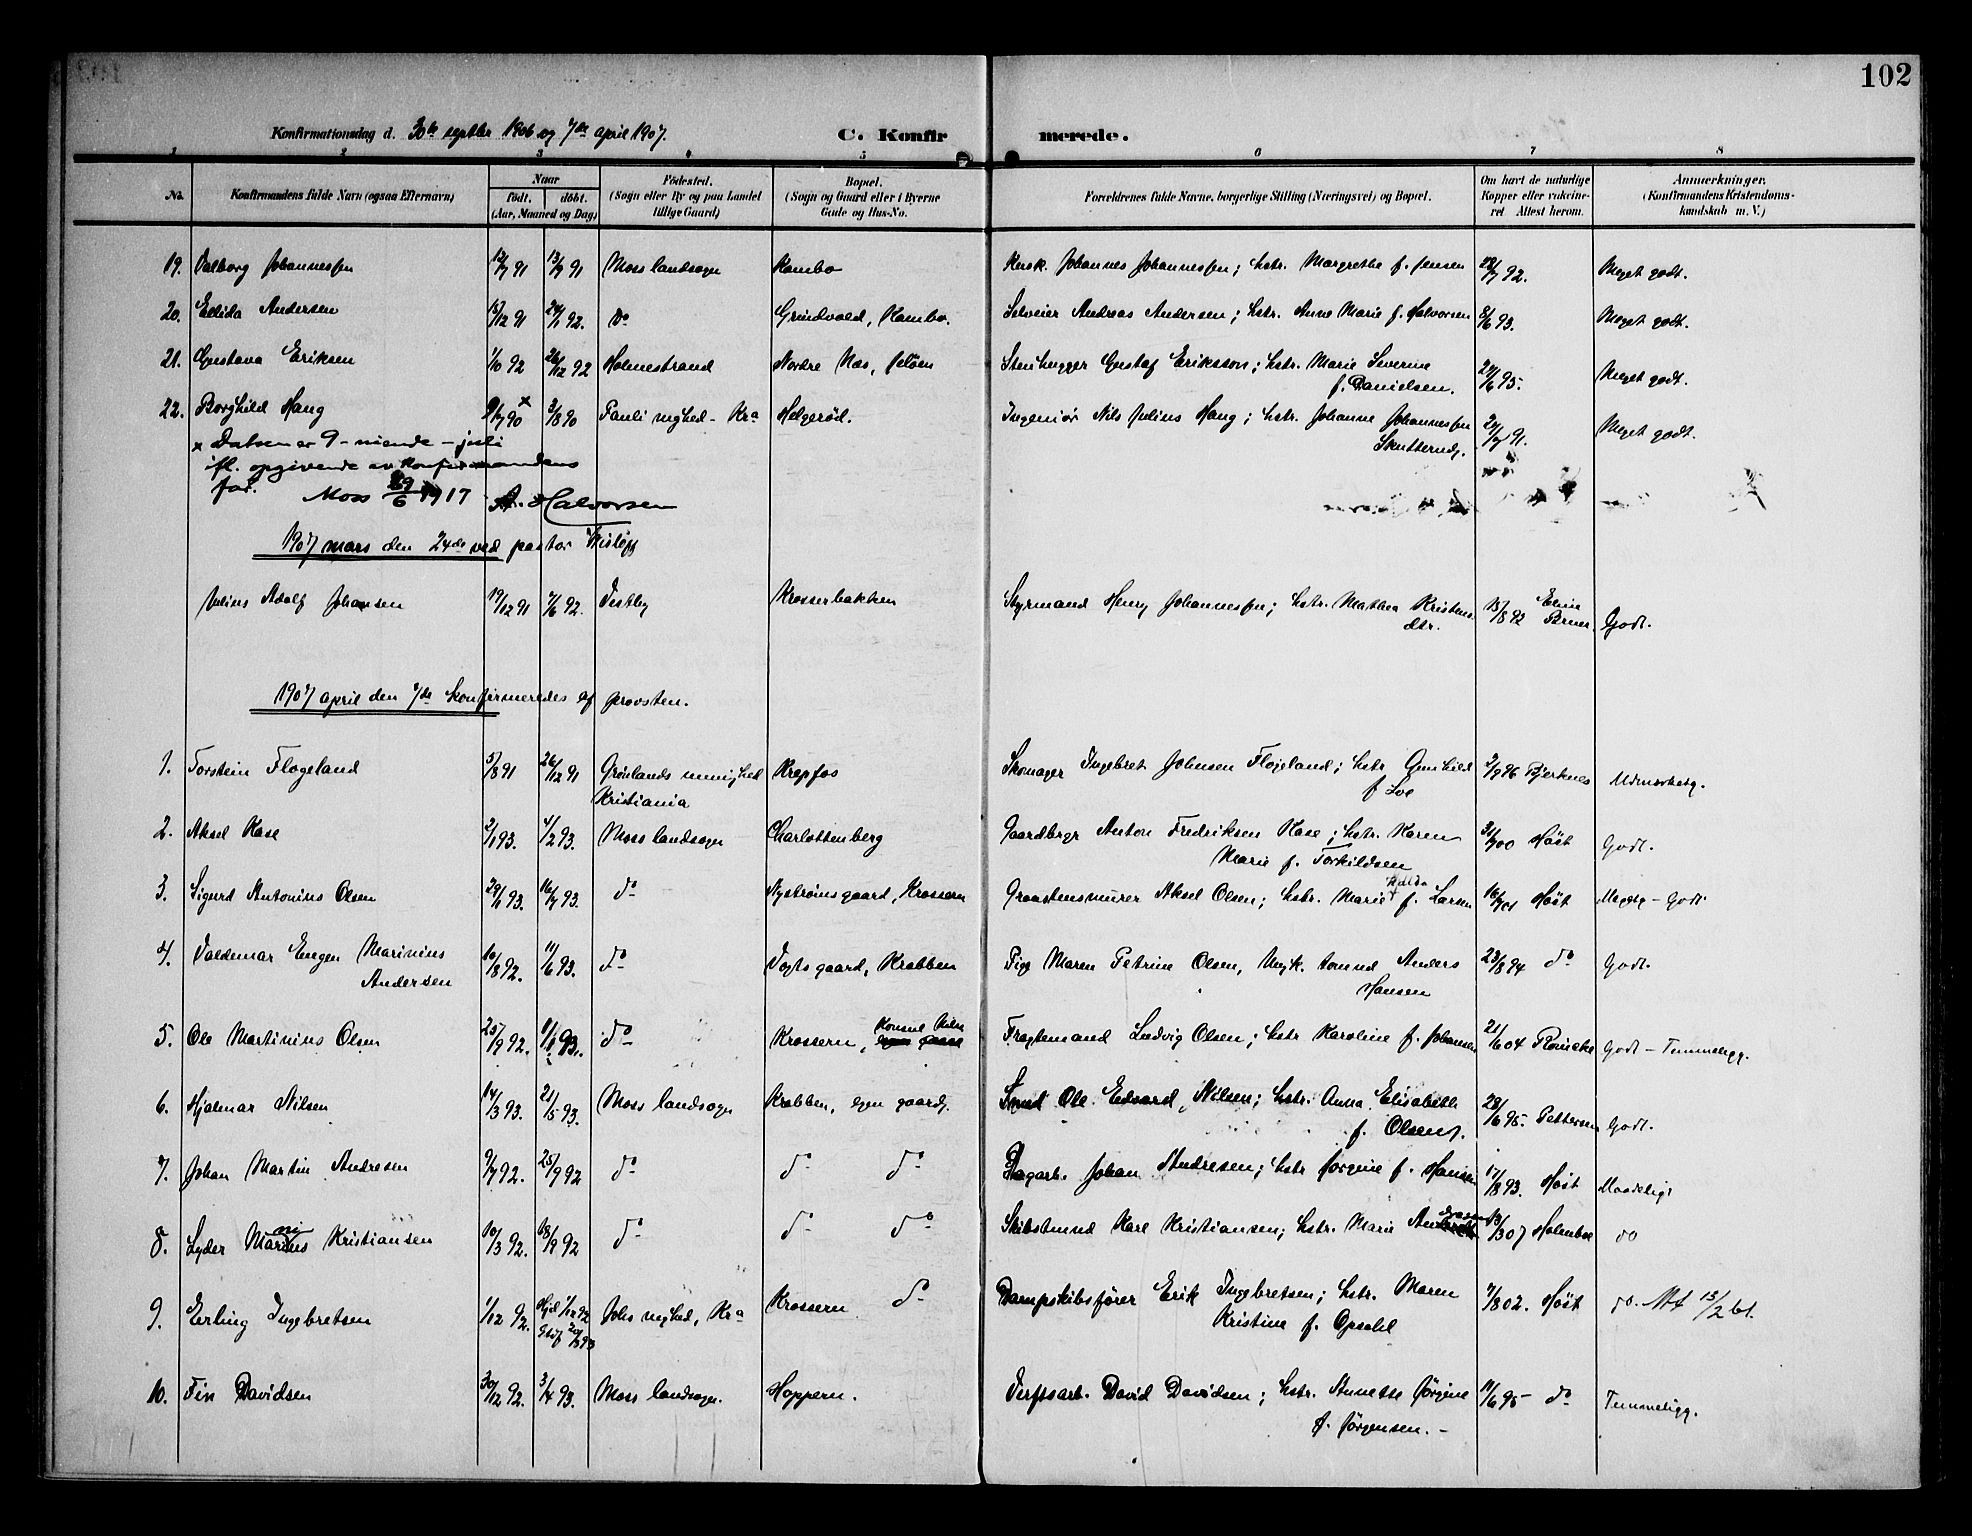 102
Konfirmationsdag d. 30te septbr 1906 og 7de april 1907. C. Konfirmerede.
1 2 3 4 5 6 7 8
No. Konfirmandens fulde Navn (ogsaa Efternavn) Naar født. døbt. (Aar, Maaned og Dag) Fødested. (Sogn eller By og paa Landet tillige Gaard) Bopæl. (Sogn og Gaard eller i Byerne Gade og Hus-No. Forældrenes fulde Navne, borgerlige Stilling (Næringsvei) og Bopæl. Om havt de naturlige Kopper eller vakcineret Attest herom. Anmærkninger. (Konfirmandens Kristendomskundskab m. V.)
19. Valborg Johannessen 13/9 91 Moss landsogn Kambo Johannes Johannessen; hstr. Margrethe f. Jensen 92. Meget godt.
20. Ellida Andersen 15/12 91 24/1 92. do Grindvold, Kambo. Andreas Andersen; hstr. Anne Marie f. Halvorsen 8/6 93. Meget godt.
21. Gustava Eriksen 1/10 92 26/12 92 Holmestrand Nordre Næs, Jeløen Stenhugger Gustaf Eriksson; hstr. Marie Severine
f. Danielsen. 27/6 95. Meget godt.
22. Borghild Haug 9/7 90 x 3/8 90 Pauli mghed - Kra Helgerød. Ingeniør Nils Julius Haug; hstr. Johanne Johannessen
Skutterud. 91. Meget godt.
x Datoen er 9 - niende - juli
ifl. opgivende av konfirmandens
far. Moss 29/6 1917 A. Halvorsen
1907 mars den 24de ved pastor Wisløff
Julius Adolf Johansen 19/12 91 7/6 92. Vestby Krosserbakken Styrmand Henry Johannessen; hstr. Mathea Kristens-
dtr. 15/8 92 Godt.
1907 april den 7de konfirmeredes af provsten.
1. Torstein Flogeland 5/8 91 26/12 91 Grønlands menighed
Kristiania Krapfos Skomager Ingebret Johnsen Flogeland; hstr Gunhild
f Loe 2/9 96 Bjerknes Udmerketg.
2. Aksel Kase 2/1 93. 4/2 93. Moss landsogn Charlottenberg Gaardbrgr Anton Fredriksen Kase; hstr. Karen
Marie f. Torkildsen Høst Godt.
3. Sigurd Antonius Olsen 29/1 93. 16/7 93. do Nystrømsgaard, Krossern Graastensmurer Aksel Olsen; hstr. Marie Hilda f. Larsen Høst Megetg - Godt
4. Valdemar Eugen Marinius
Andersen 10/8 92. 11/6 93. do Vogtsgaard, Krabben Pige Maren Petrine Olsen, Ungk. tømmd Anders
Hansen 23/8 94 do Godt.
5. Ole Martinius Olsen 25/9 92. 1/1 93. do Krossern, Fragtemand Ludvig Olsen; hstr Karoline f. Johansen 21/6 04 Reincke Godt - Temmeligg.
6. Hjalmar Nilsen 14/3 93. 21/5 93. Moss landsogn Krabben, egen gaard, Smed Ole Edvard Nilsen; hstr. Anna Elisabeth
f. Olsen. 28/6 95. Pettersen Godt.
7. Johan Martin Andresen 9/7 92. 25/9 92 do do do Dagarb. Johan Andresen; hstr Jørgine f. Hansen 17/8 93. Høst Maadeligt
8. Lyder Marinius Kristiansen 10/3 92. 18/9 92 do do do Skibstmmd Karl Kristiansen; hstr. Marie 13/3 07 Holmboe do
9. Erling Ingebretsen 1/12 92. Hjd Johs mghed, Kra Krossern do Dampskibsfører Erik Ingebretsen; hstr. Maren
Kristine f. Opsahl 7/8 02. Høst do. Att 13/2 61.
10. Fin Davidsen 30/12 92. 3/4 93. Moss landsogn. Hoppern. Verftsarb. David Davidsen; hstr. Annette Jørgine
f. Jørgensen. - 11/6 95 - do Temmeligg.